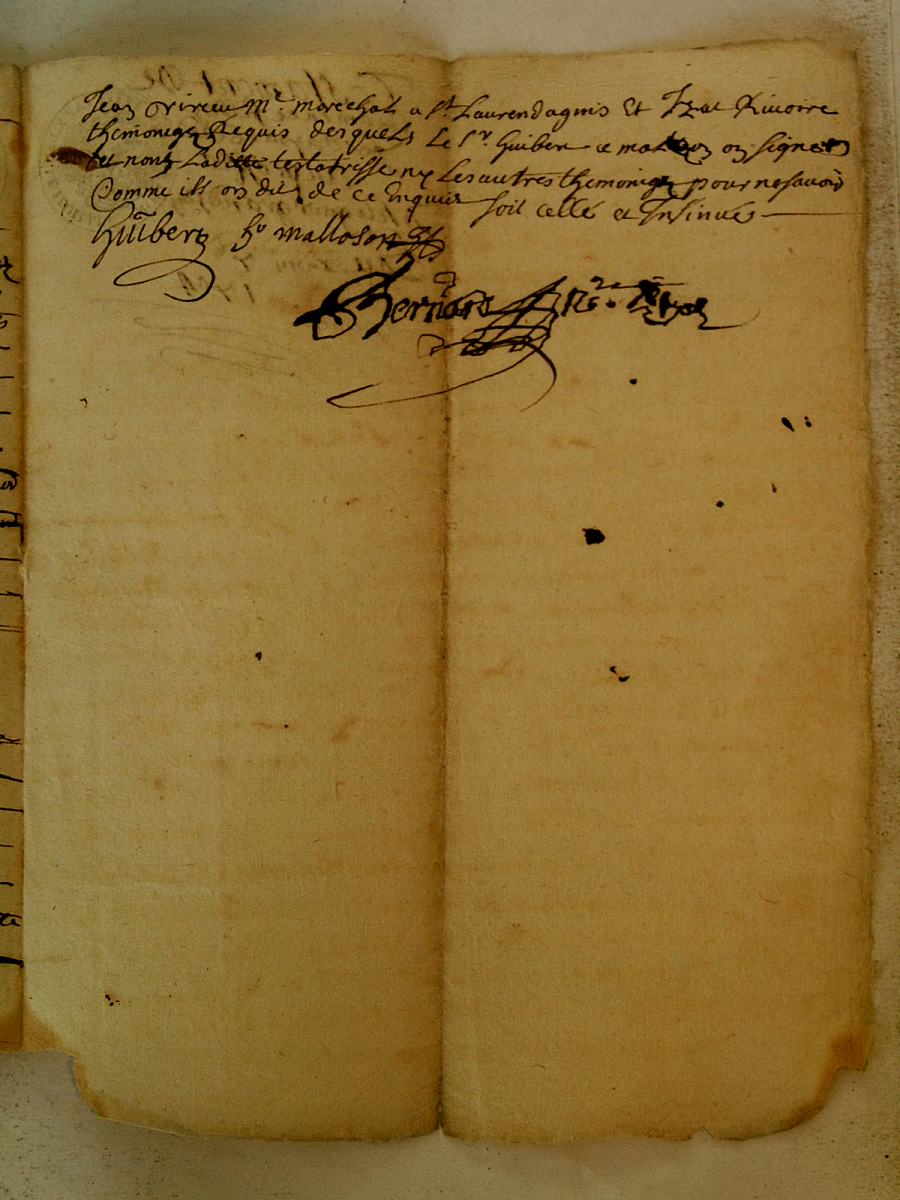 Jean Mr. marechal a St. Laurendagnis Et Izac Rivoire
themoniez Requis desquels Le Sr. Guibert e mallozon on signes
et nont Ladite testatrisse ny Les autres themoniez pour ne savoir
Comme ils on dit de ce Enquis soit cellé et Insinués
Guibert malloson
Bernard Nre.